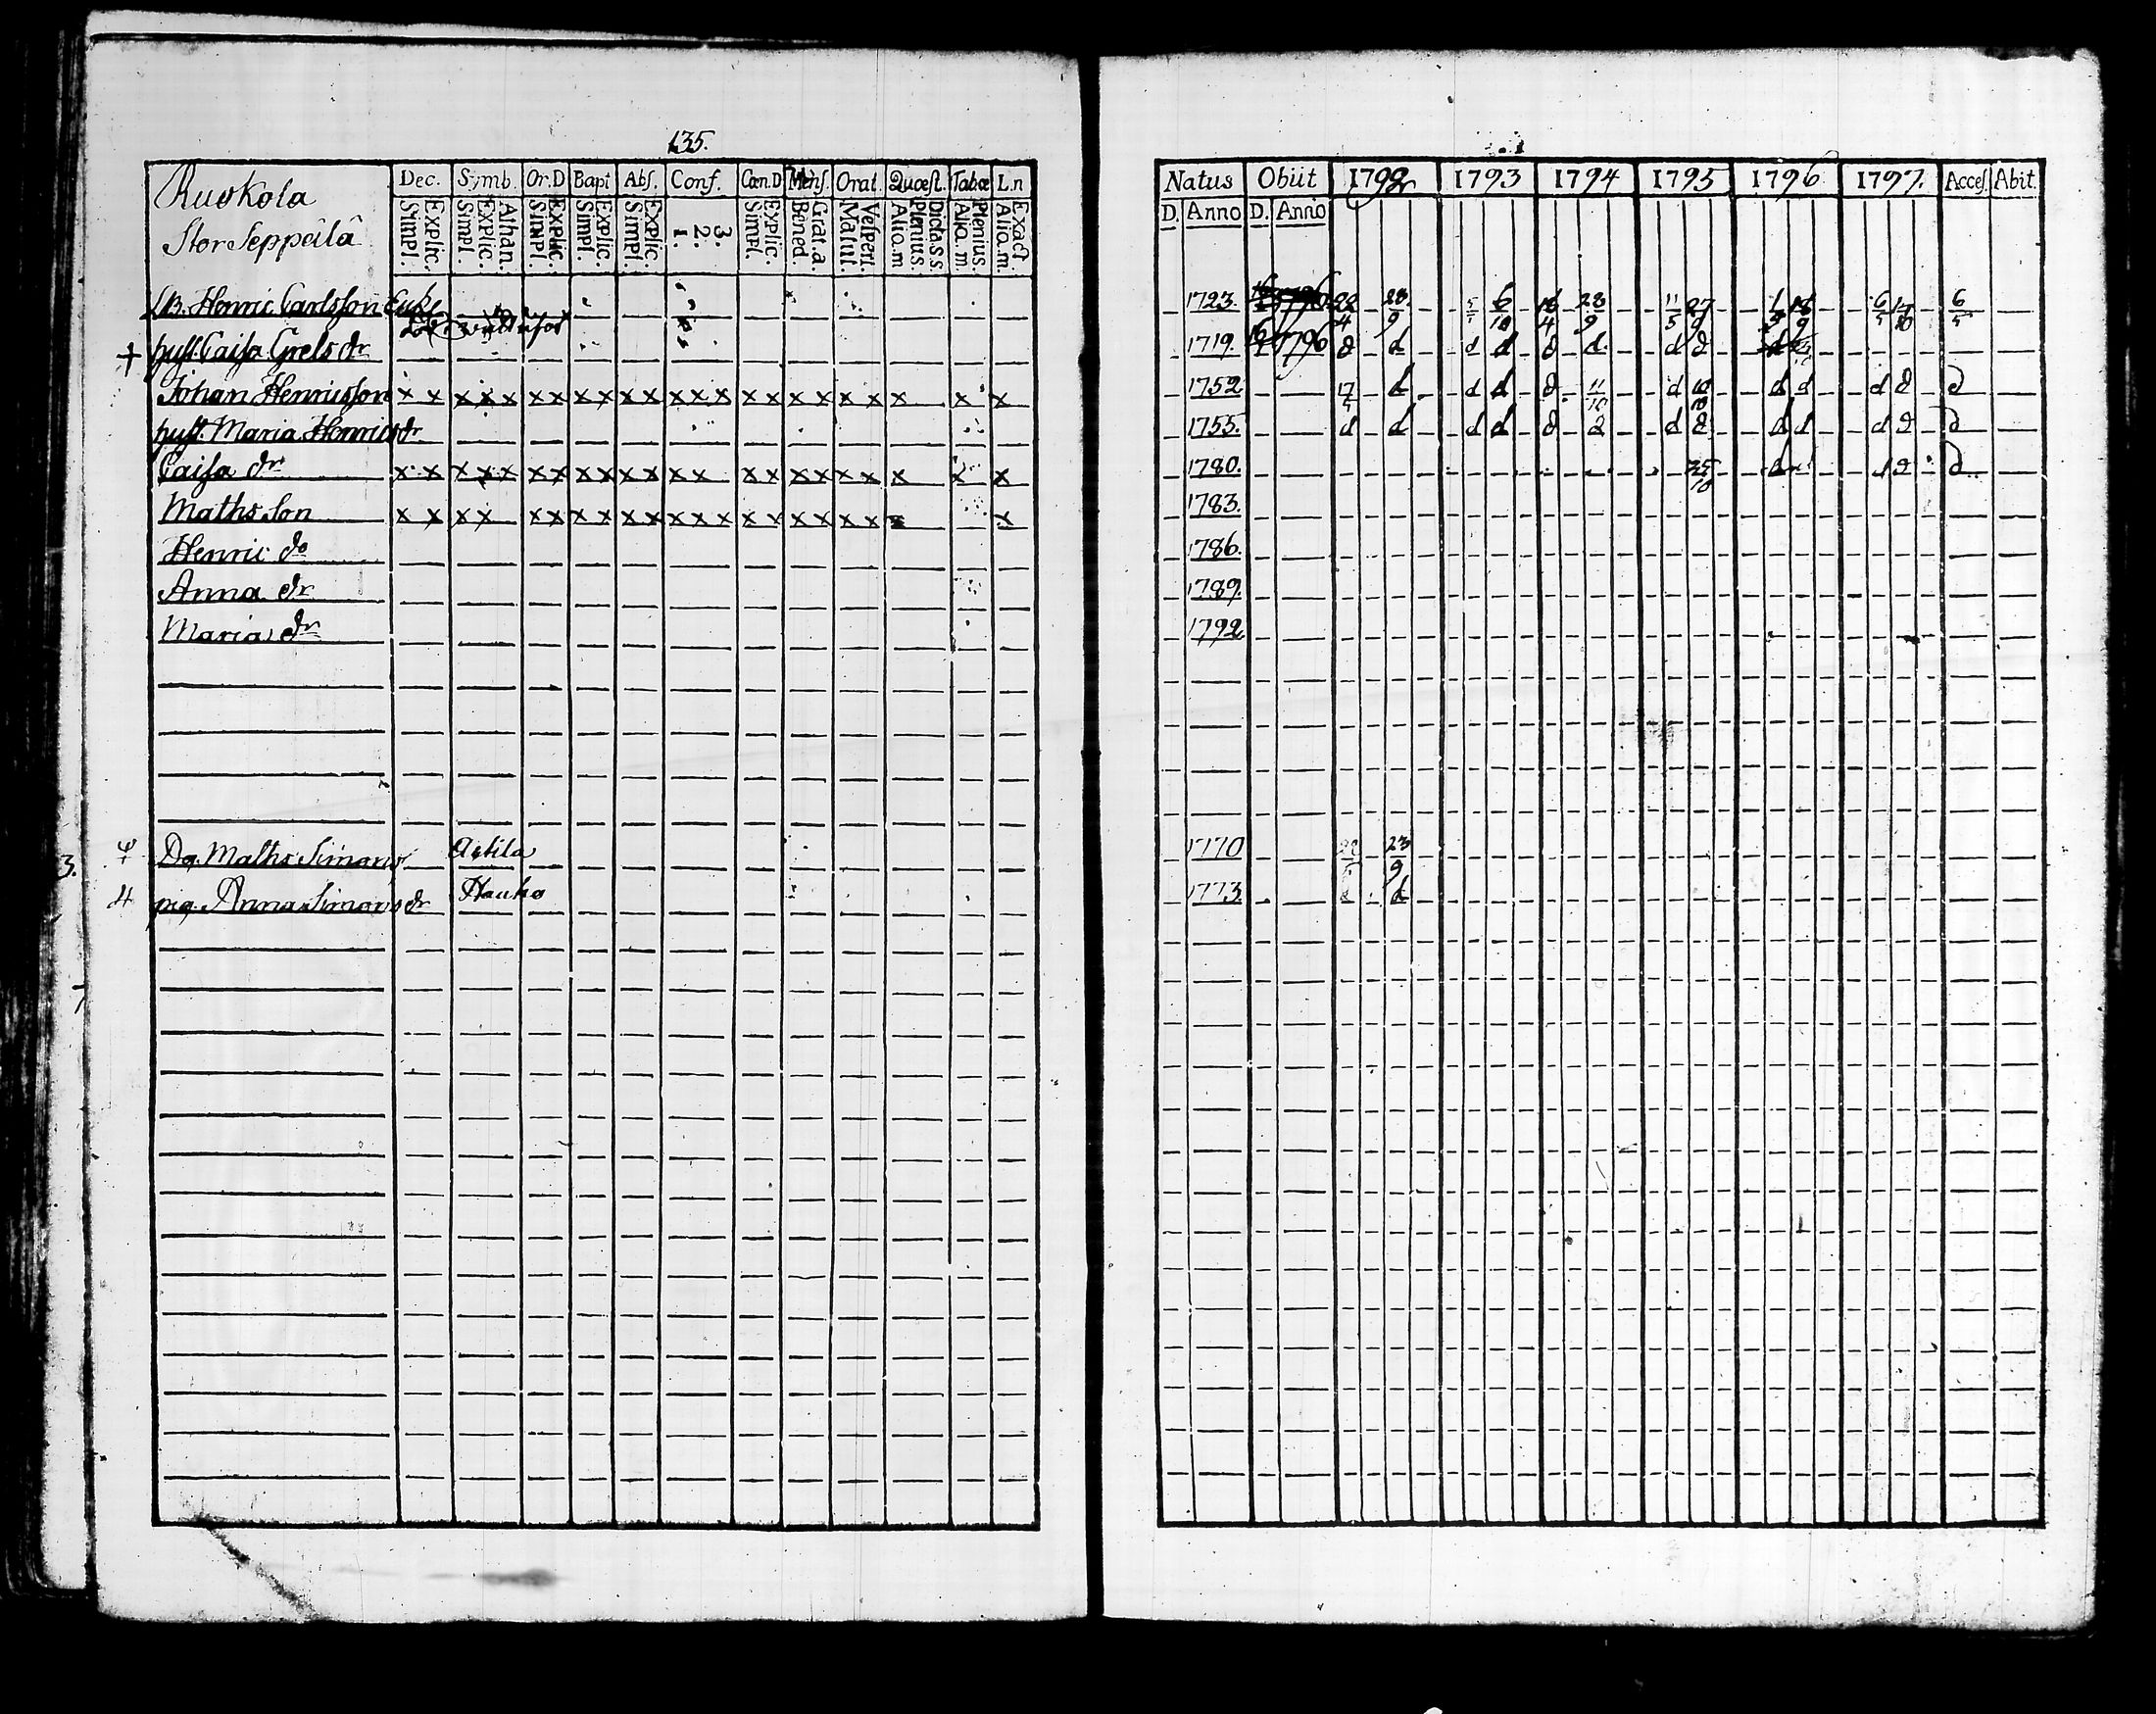 135.
Ruokola
Stor Seppälä
Dec. Symb. Or.D Bapt Abs. Conf. Cœn.D Mens. Orat. Quæst. Tabœ L.n
Simpl. Explic. Simpl. Explic. Athan. Simpl. Explic. Simpl. Explic. Simpl. Explic. 1. 2. 3. Simpl. Explic. Bened. Grat.a. Matut. Vespert. Alio.m Plenius. Dicta.S.S. Alio.m. Plenius. Alio.m. Exact
Natus Obiit 1792 1793 1794 1795 1796 1797. Acces. Abit.
D. Anno D. Anno
Henric Carlsson Enke 1723. 22/4 23/9 6/10 16/4 28/9 11/5 27/9 18/9 6/5 17/10 6/5
† hust. Caisa Grels dr 1719. 16 1796 d d d d d d d d
Johan Henricsson x x x x x x x x x x x x x x x x x x x x x x x 1752 17/4 d d d d 11/10 d 10/10 d d d d d
hust. Maria Henricsdr 1755. d d d d d d d d d d d d d
Caisa dr x x x x x x x x x x x x x x x x x x x x x 1780. 25/10 d d d d
Maths Son x x x x x x x x x x x x x x x x x x x x 1783.
Henric do 1786.
Anna dr 1789.
Maria dr 1792
3. Dq. Maths Simons Astila 1770 23/9
pig. Anna Simonsdr Hauho 1773. d